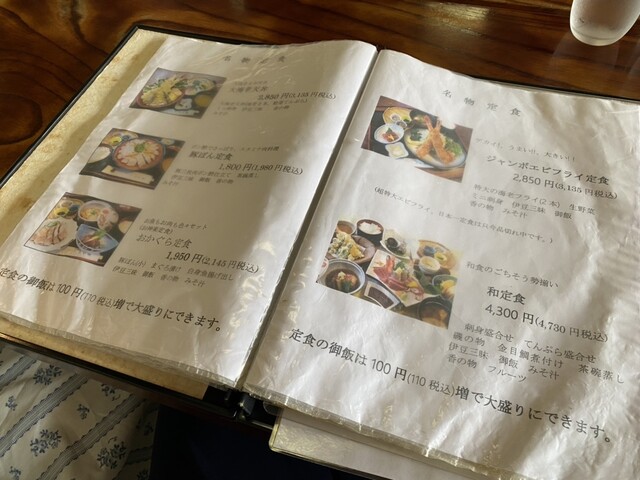 名物定食
2,850円(3,135円税込)
豚ぽん定食
1,800円(1,980円税込)
伊豆三昧 御飯 香の物
みそ汁
おかぐら定食
1,950円(2,145円税込)
伊豆三昧 御飯 香の物 みそ汁
定食の御飯は100円(110税込)増で大盛りにできます。
名物定食
デカイ！、うまい！！、大きい！！
ジャンボエビフライ定食
2,850円(3,135円税込)
特大の海老フライ(2本) 生野菜
伊豆三昧 御飯
香の物 みそ汁
和食のごちそう勢揃い
和定食
4,300円(4,730円税込)
刺身盛合せ てんぷら盛合せ
磯の物 金目鯛煮付け 茶碗蒸し
伊豆三昧 御飯 みそ汁
香の物 フルーツ
定食の御飯は100円(110税込)増で大盛りにできます。